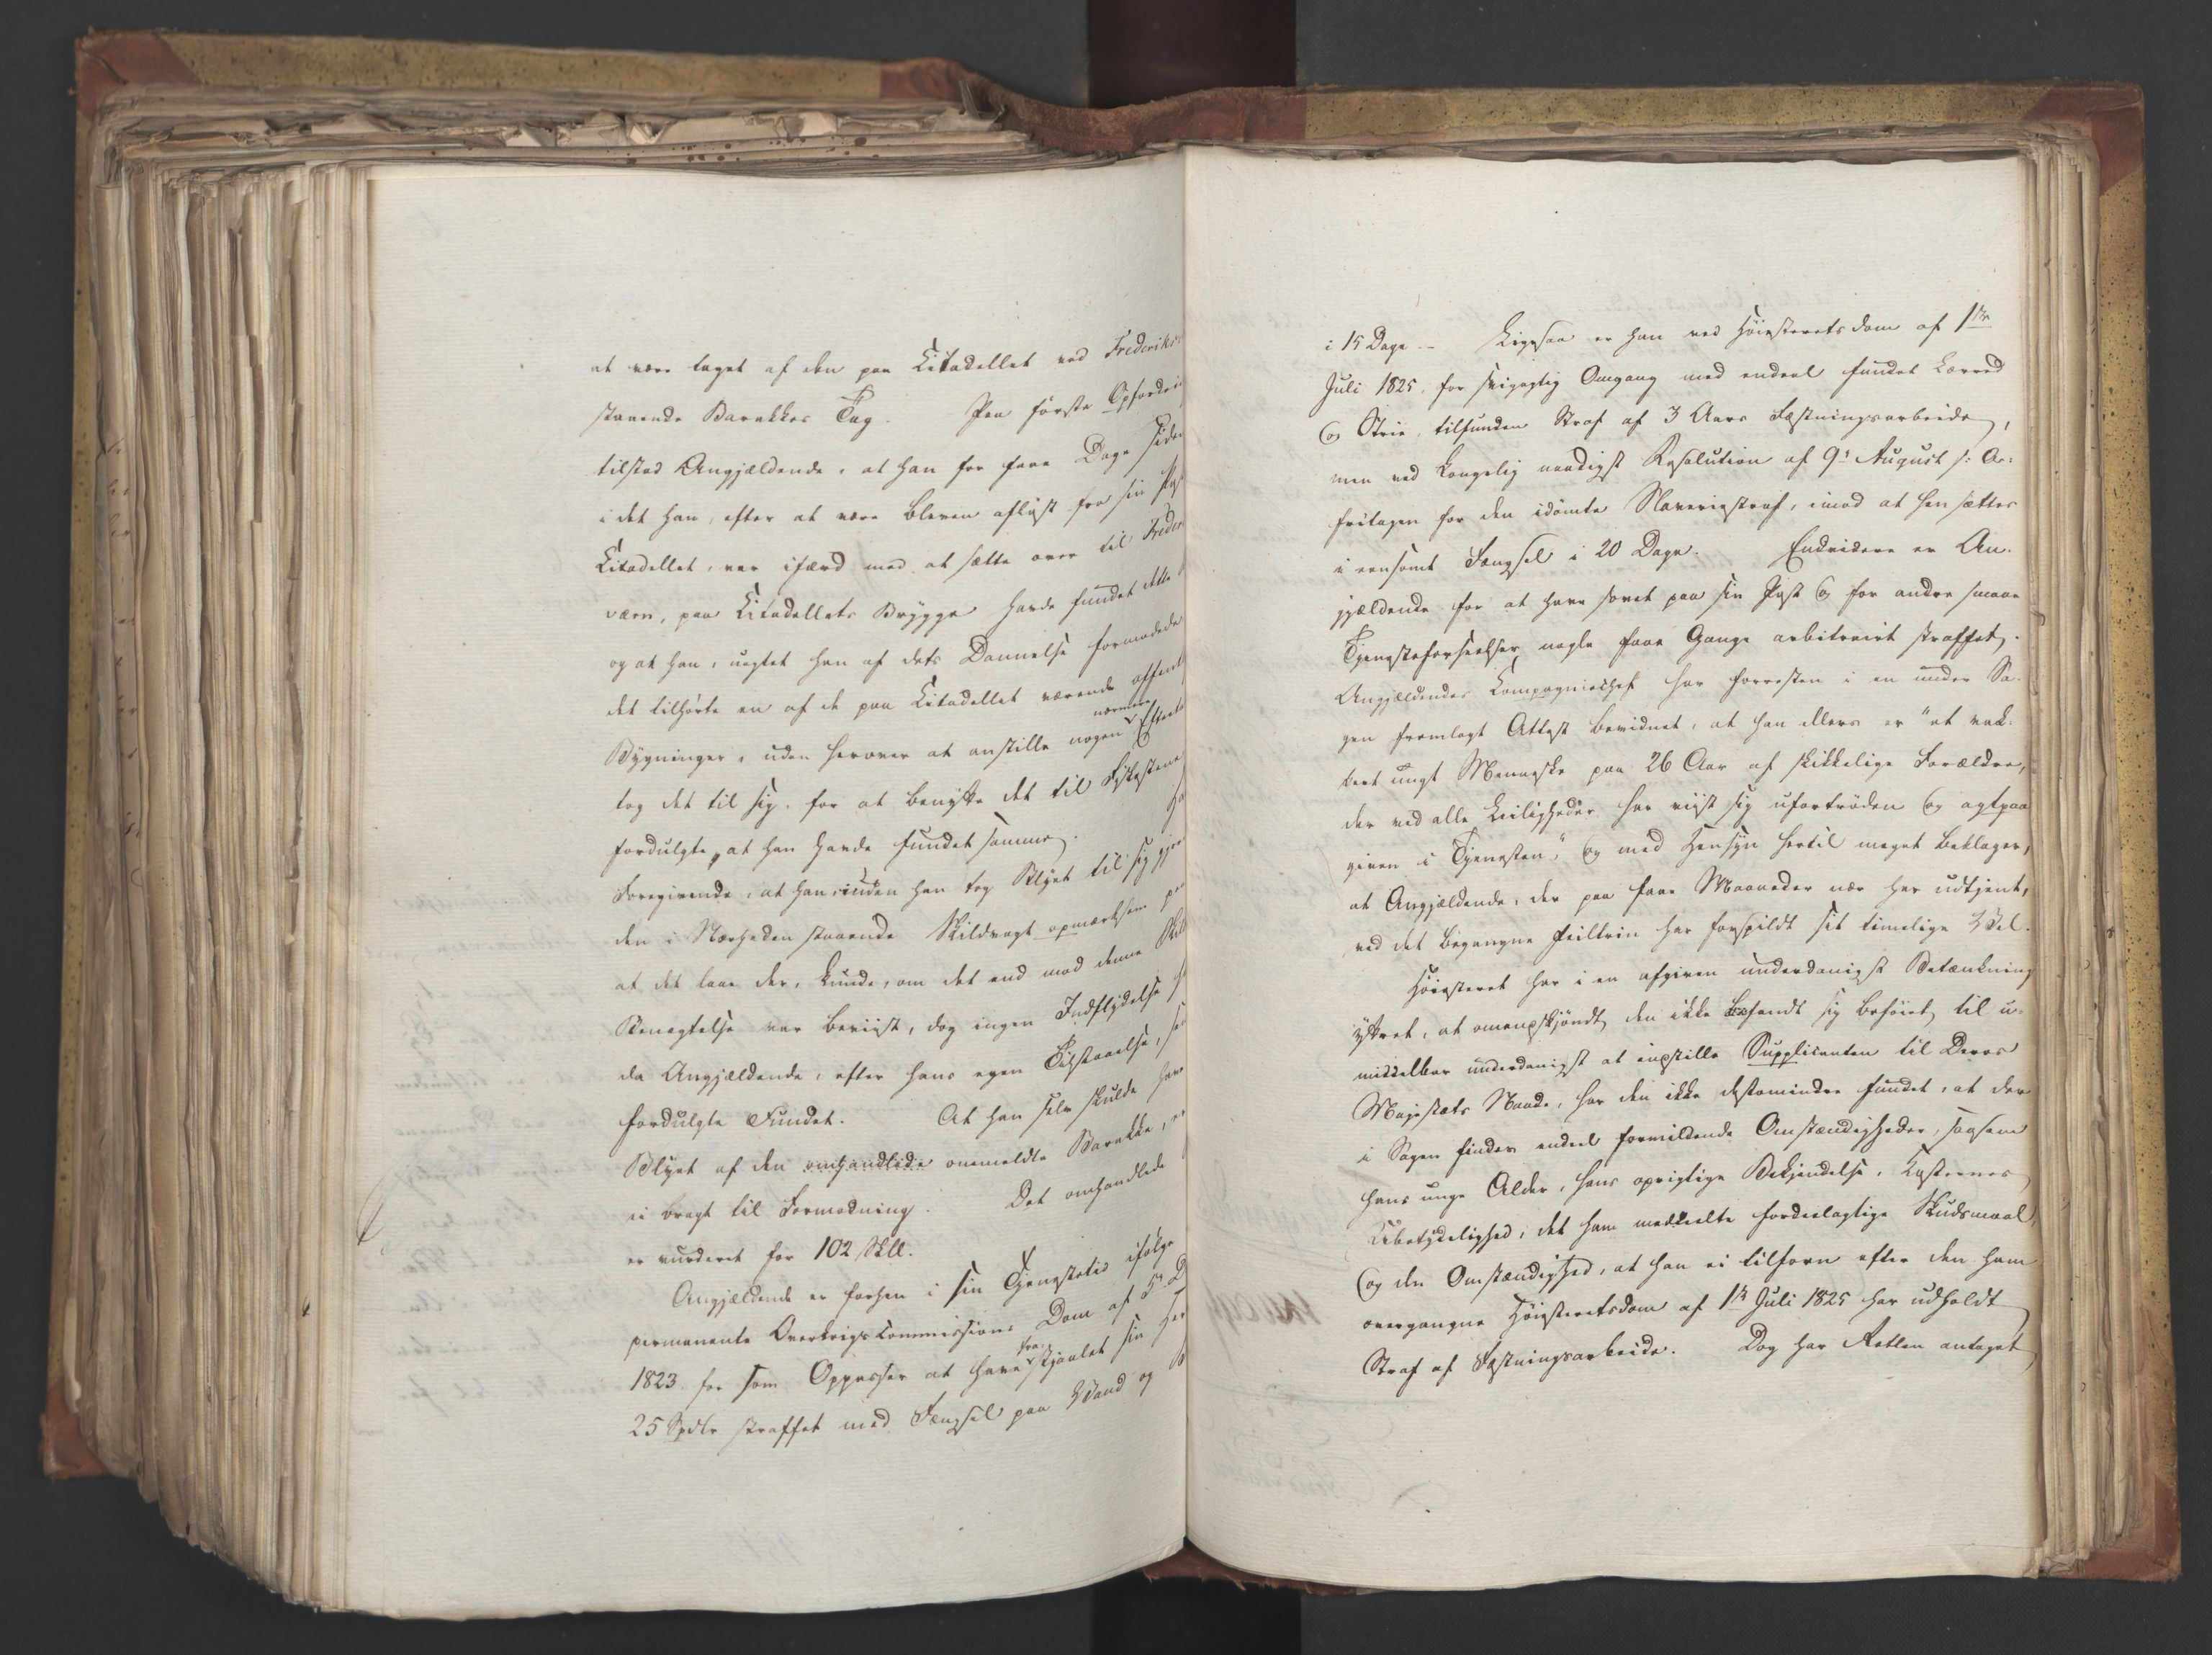 at være taget af den paa Citadellet ved Frederiks
staaende Barakkes Tag. Paa første Opfordri
tilstod Angjældende, at han for faae Dage siden
idet han, efter at være bleven afløst fra sin Post
Citadellet, var ifærd med at sætte over til Freder
værn, paa Citadellets Brygge havde fundet dette
og at han, uagtet han af dets Dannelse formodede
det tilhørte en af de paa Citadellet værende offent
Bygninger, uden herover at anstille nogen nærmere Efterl
tog det til sig, for at benytte det til Fiskestene
fordulgte, at han havde fundet samme. Ha
Foregivende, at han, inden han tog Blyet til sig gjor
den i Nærheden staaende Skildvagt opmærksom paa
at det laae der, kunde, om det end mod denne Skil
Benægtelse var beviist, dog ingen Indflydelse
da Angjældende, efter hans egen Tilstaaelse,
fordulgte Fundet. At han selv skulde have
Blyet af den omhandlede ommeldte Barakke, er
ei bragt til Formodning. Det omhandlede
er vurderet for 102 Skll.
Angjældende er forhen i sin Tjenestetid ifølge
permanente Overkrigscommissions Dom af 5te D
1823 for som Oppasser at have fra stjaalet sin Her
25 Spdlr straffet med Fængsel paa Vand og B
i 15 Dage. – Ligesaa er han ved Høiesteretsdom af 1ste
Juli 1825, for svigagtig Omgang med endeel fundet Lærred
og Strie, tilfunden Straf af 3 Aars Fæstningsarbeide,
men ved Kongelig naadigst Resolution af 9de August s: A:
fritagen for den idømte Slaveriestraf, imod at hensættes
i eensomt Fængsel i 20 Dage. Endvidere er An-
gjældende for at have sovet paa sin Post og for andre smaae
Tjenesteforseelser nogle faae Gange arbitrairt straffet.
Angjældendes Compagniechef har forresten i en under Sa-
gen fremlagt Attest bevidnet, at han ellers er "et vak-
kert ungt Menneske paa 26 Aar af skikkelige Forældre,
der ved alle Leiligheder har viist sig ufortrøden og agtpaa
given i Tjenesten," og med Hensyn hertil meget beklager,
at Angjældende, der paa faae Maaneder nær har udtjent,
ved det begangne Feiltrin har forspildt sit timelige Vel.
Høiesteret har i en afgiven underdanigst Betænkning
yttret, at omendskjøndt den ikke befandt sig beføiet til u-
middelbar underdanigst at indstille Supplicanten til Deres
Majestæts Naade, har den ikke destomindre fundet, at der
i Sagen findes endeel formildende Omstændigheder, saasom
hans unge Alder, hans oprigtige Bekjendelse, Kosternes
Ubetydelighed, det ham meddeelte fordeelagtige Skudsmaal,
og den Omstændighed, at han ei tilforn efter den ham
overgangne Høiesteretsdom af 1ste Juli 1825 har udholdt
Straf af Fæstningsarbeide. Dog har Retten antaget